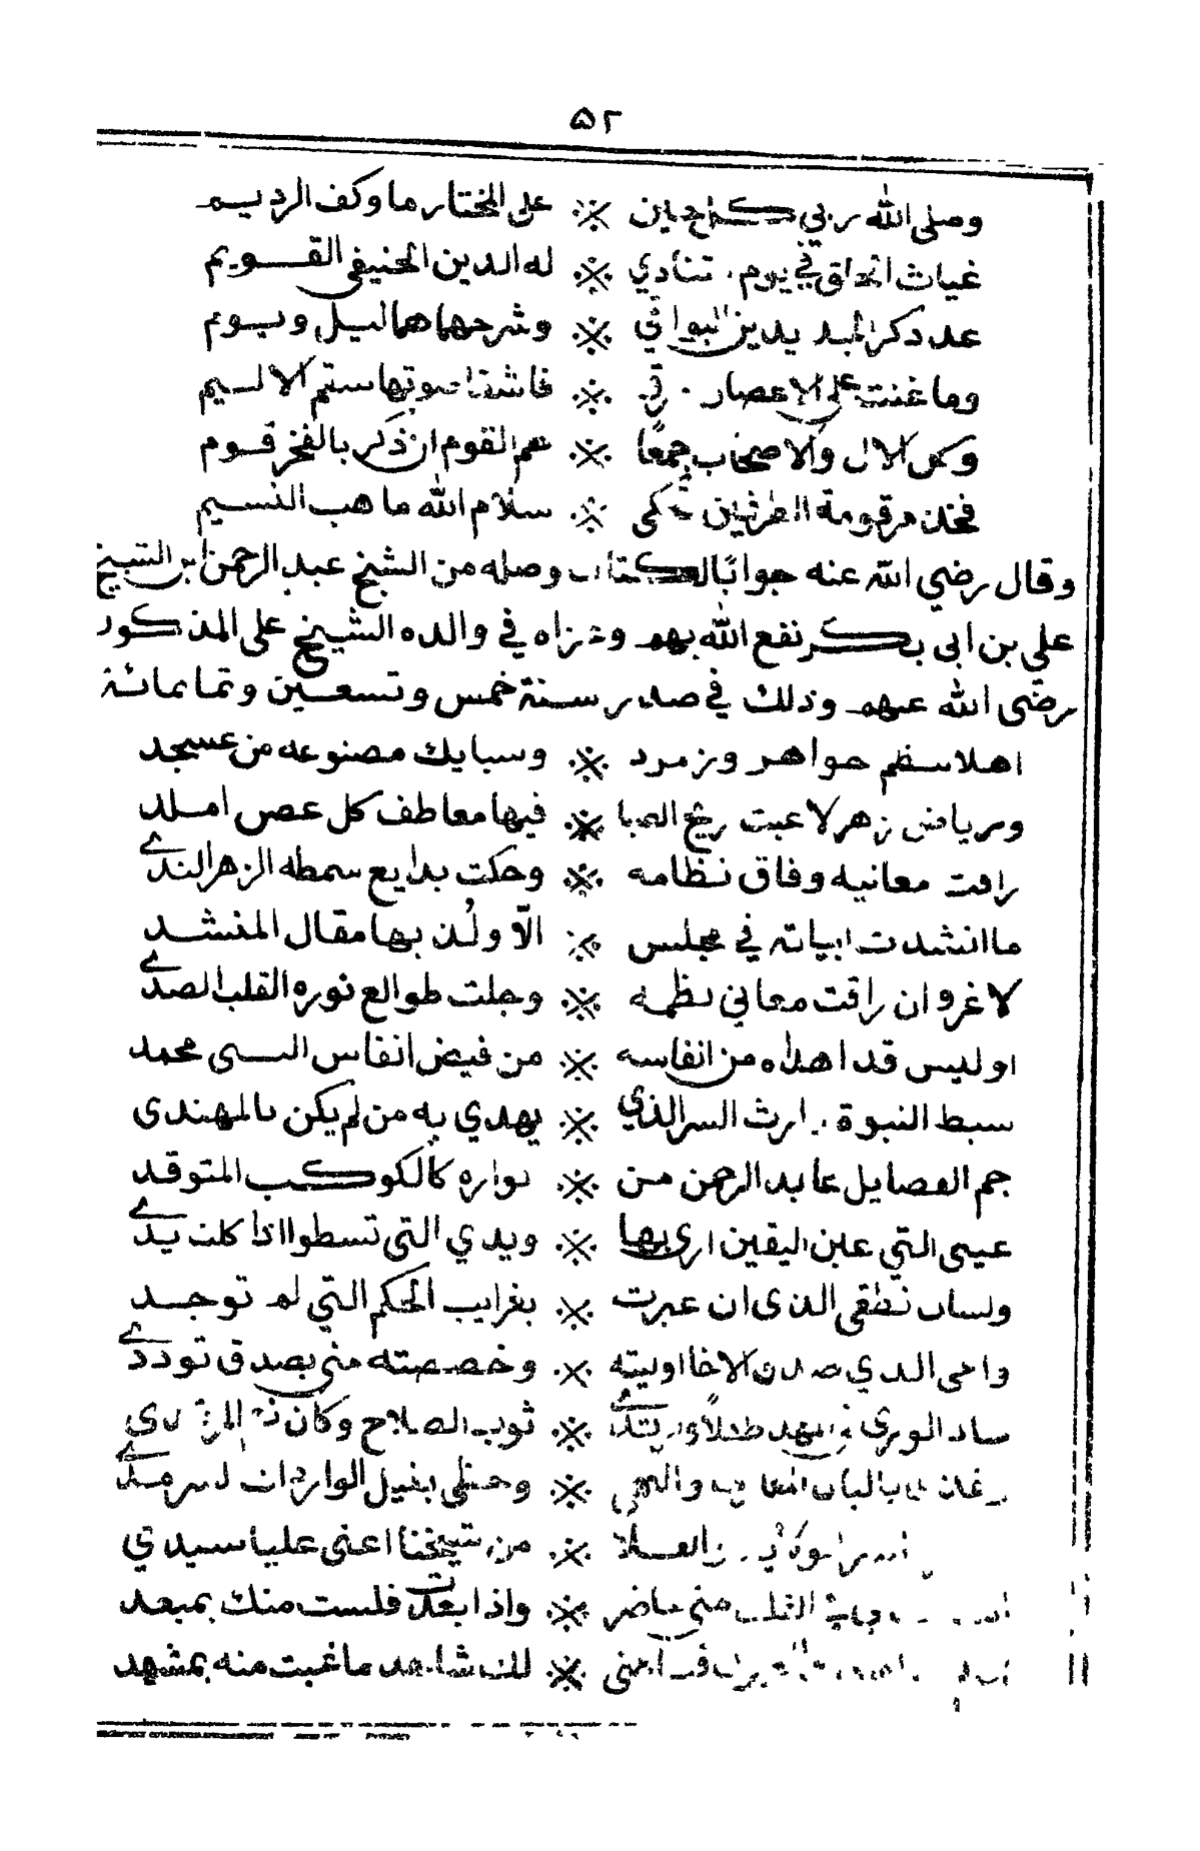 ٥٢
وصلى الله ربي كل حين ※ على المختار ما وكف الرديم
غياث الخلق في يوم تنادي ※ له الدين الحنيفي القويم
عدد ذكر ※ وشرحها هما ليل ويوم
وما غنت على الاعصار ※ الاليم
وكل الال والاصحاب جمعًا ※ هم القوم ان ذكر بالفخر قوم
فخذ مرقومة الطرفين تحكى ※ سلام الله ما هب النسيم
وقال رضي الله عنه جوابًا لكتاب وصله من الشيخ عبد الرحمن ابن الشيخ
علي بن ابى بكر نفع الله بهم وعزاه في والده الشيخ على المذكور
رضى الله عنهم وذلك في صدر سنة خمس وتسعين وثمانمائة
اهلا بنظم جواهر وزمرد ※ وسبايك مصنوعه من عسجد
ورياض زهر لاعبت ريح الصبا ※ فيها معاطف كل غصن املد
راقت معانيه وفاق نظامه ※ وحكت بدايع سمطه الزهر الندي
ما انشدت ابياته في مجلس ※ الّا ولُذ بها مقال المنشد
لا غرو ان راقت معاني نظمه ※ وجلت طوالع نوره القلب الصدي
اوليس قد اهداه من انفاسه ※ من فيض انفاس النبى محمد
سبط النبوة وارث السر الذي ※ يهدي به من لم يكن بالمهتدى
جم الفضايل عابد الرحمن من ※ نواره كالكوكب المتوقد
عينى التي عين اليقين ارى بها ※ ويدي التى تسطوا اذا كلت يدي
ولسان نطقى الذى ان عبرت ※ بغرايب الحكم التي لم توجد
واخى الذي صدق الاخا اوليته ※ وخصصته منى بصدق توددي
ساد الورى في المهد طفلًا وارتدى ※ ثوب الصلاح وكان نعم المرتدى
بالبان ※ وحظى بنيل الواردات السرمدي
العلا ※ من شيخنا اعنى عليا سيدي
القلب منى حاضر ※ واذا بعدت فلست منك بمبعد
※ لك شاهد ما غبت منه بمشهد